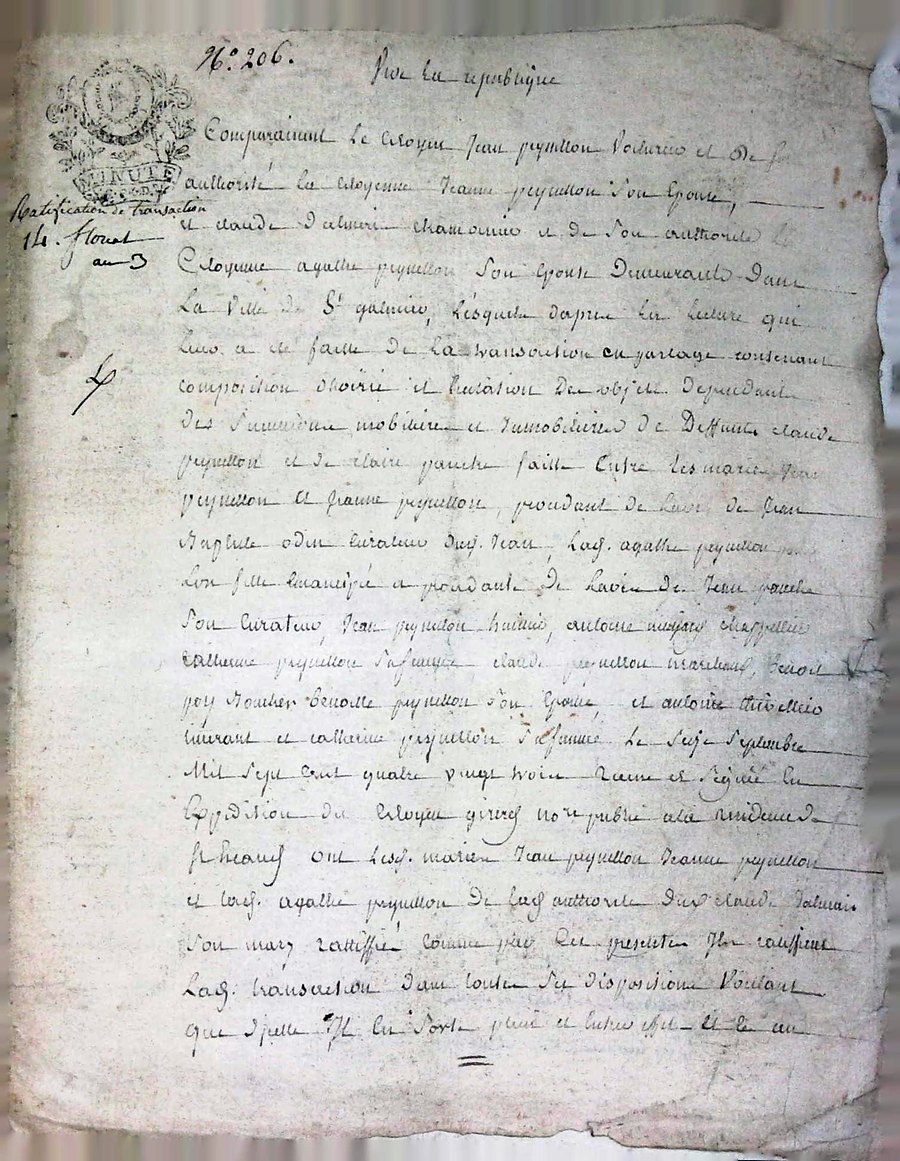 N.º 206.
Vive La republique
MINUTE
Ratification de transaction
14. floreal
an 3
Comparaissent Le Citoyen Jean peyrellon Voiturier et De
authorité La Citoyenne Jeanne peyrellon Son Epouse,
et claude Dalmais chamoine et de Son authorité La
Citoyenne agathe peyrellon Son Epouse Demeurants Dans
La Ville de St galmier, Lesquels Dapres La Lecture qui
Leur a été faitte De La transaction en partage contenant
composition et Des objets Dependants
Des Successions mobiliaires et Immobiliaires De Deffunts claude
peyrellon et de claire ponche faitte Entre Les maries Jean
peyrellon et Jeanne peyrellon, procedant de Lavis de Jean
Baptiste odin Curateur Dud. Jean, Lad. agathe peyrellon
Lors fille Emancipée et procedante De Lavis de Jean ponche
Son Curateur, Jean peyrellon huissier, antoine chappellier
Catherine peyrellon Sa femme claude peyrellon marchand, Benoit
Boucher Benoitte peyrellon Son Epouse, et antoine thivellier
et catherine peyrellon Sa femme Le Seize Septembre
Mil Sept Cent quatre Vingt treize Reçue et Signée En
Expedition du Citoyen girerd nore public a la residence de
ont Lesd. maries Jean peyrellon Jeanne peyrellon
et Lad. agathe peyrellon De Lad authorité Dud claude Dalmais
Son mary rattiffié comme par Ces presentes Ils rattiffient
Lad. transaction Dans toutes Ses Dispositions Voulant
que Dpelle Il En Sorte plein et Entier effet et Le au